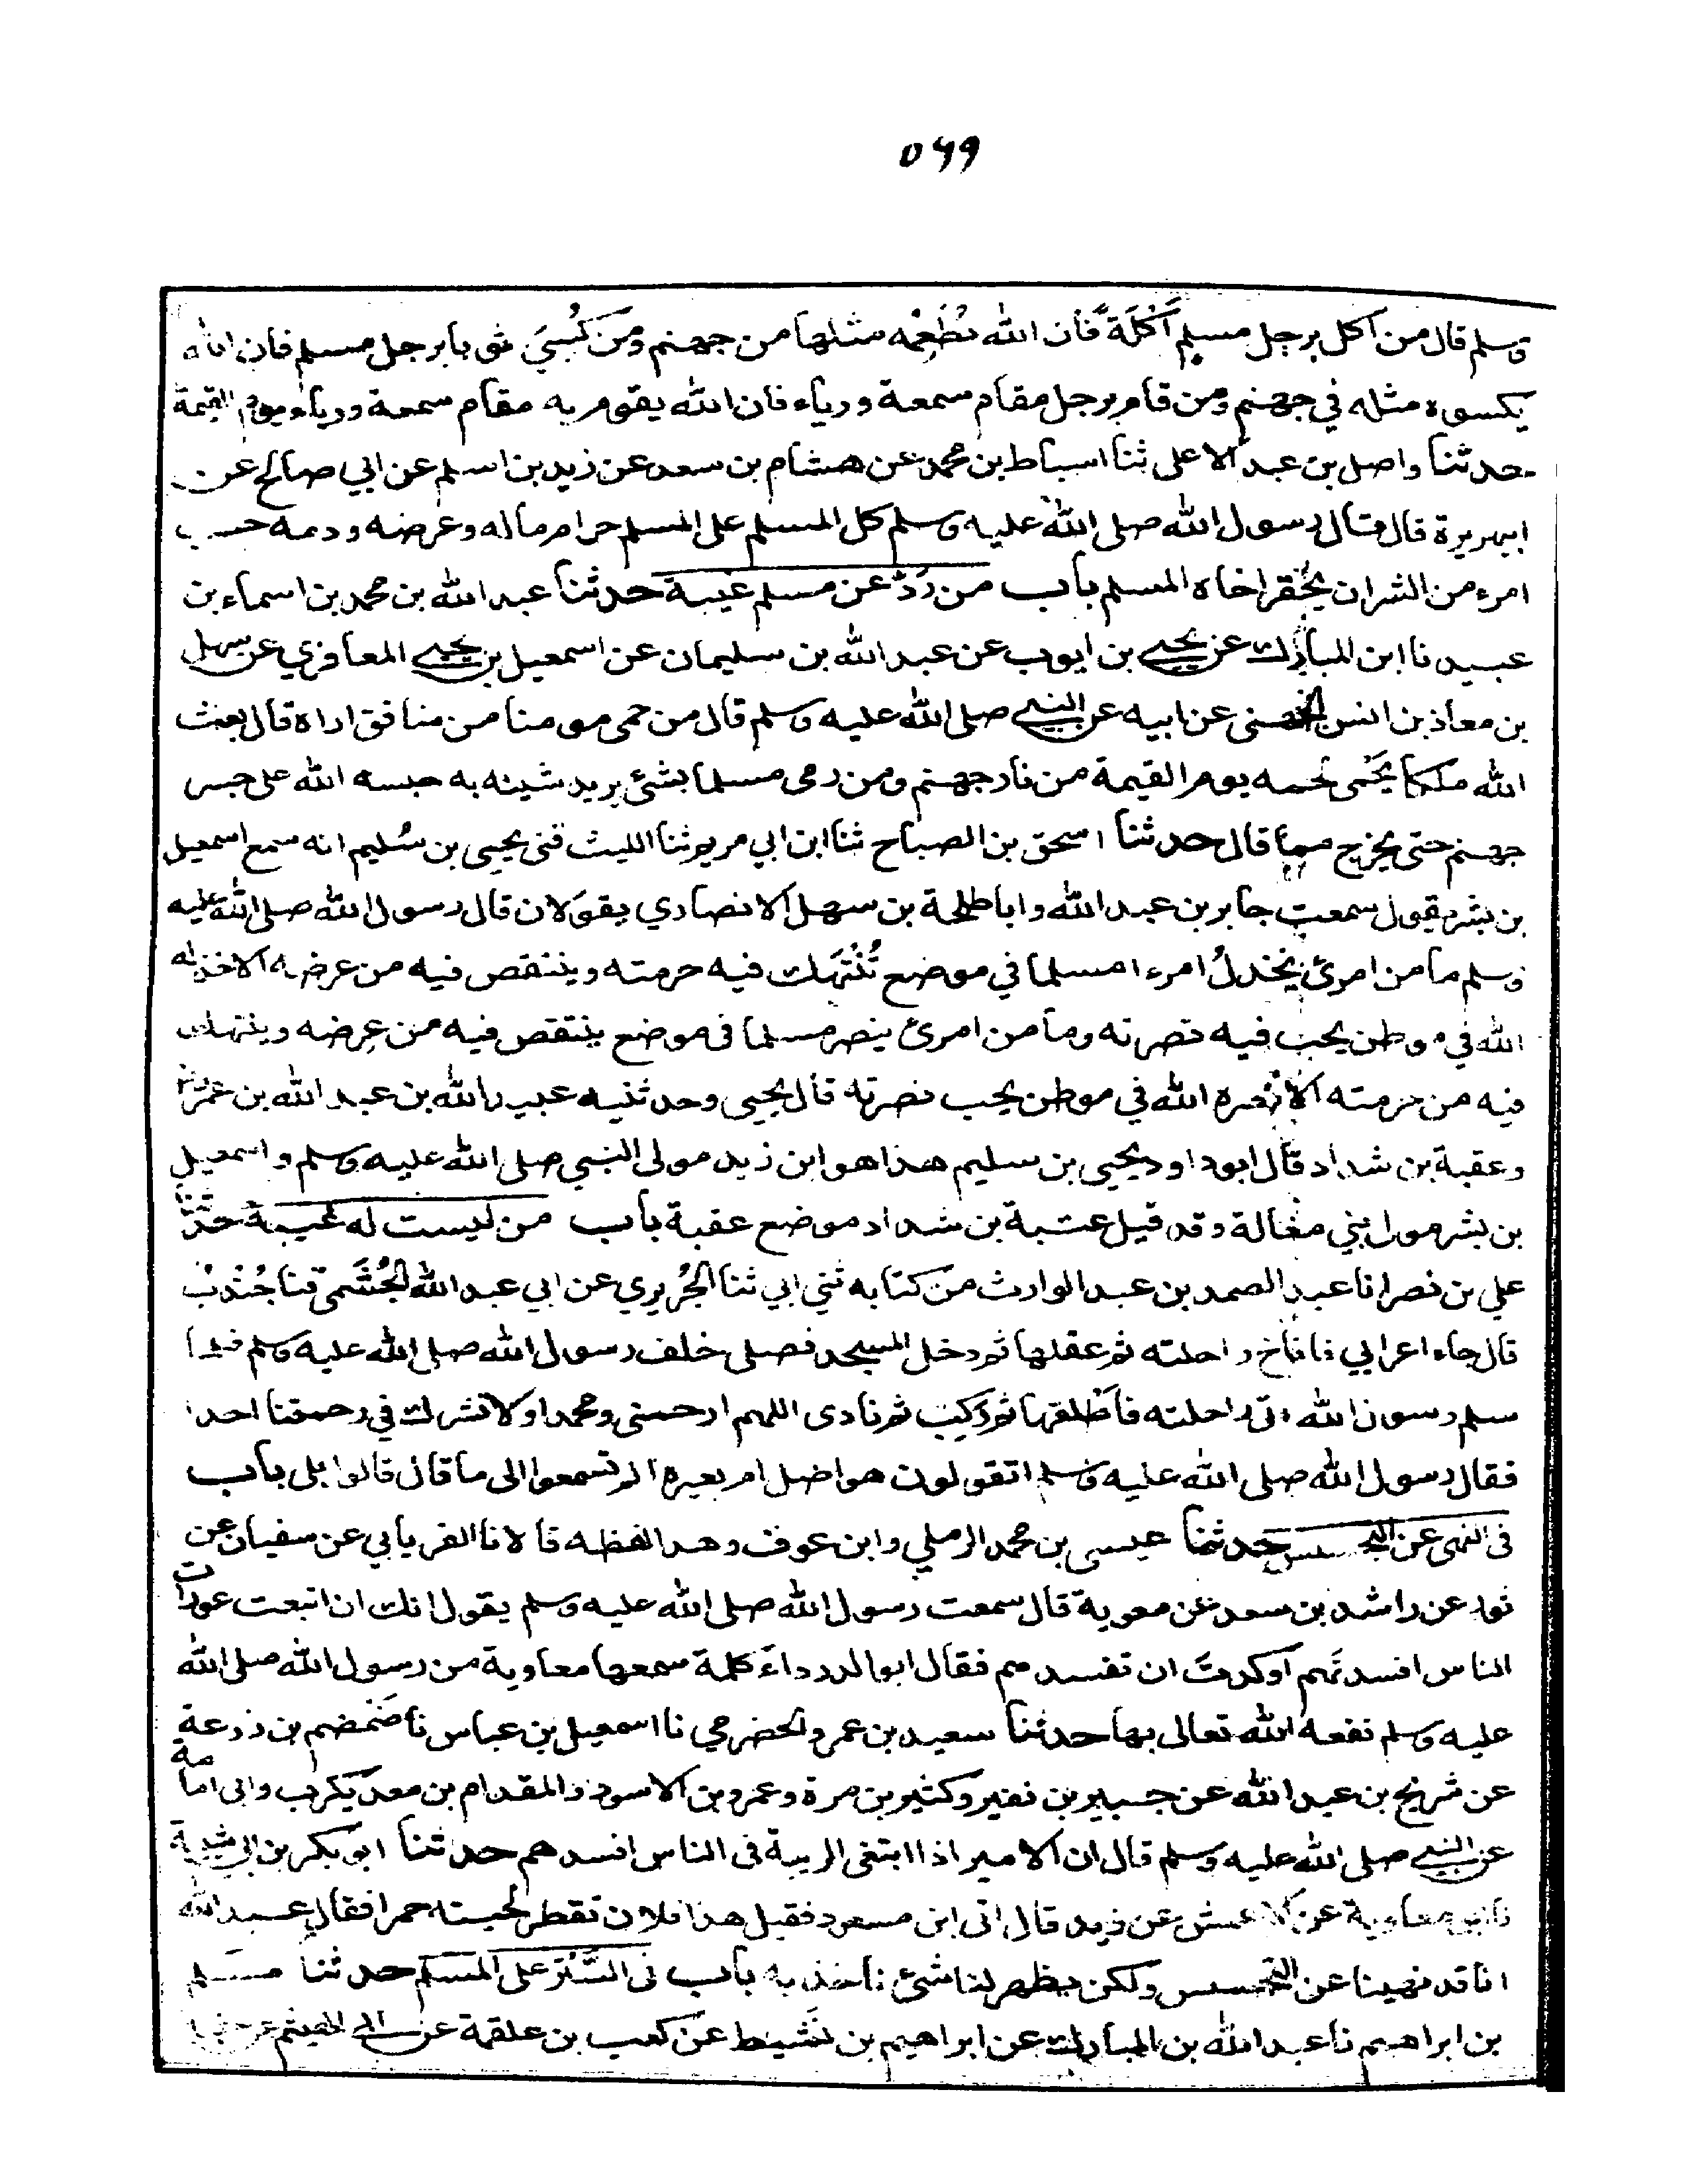 ٥٦٩
وسلم قال من اكل برجل مسلم اَكْلَةً فان الله يُطْعِمُه مثلها من جهنم ومَن كُسِيَ ثوبا برجل مسلم فان الله
يكسوه مثله في جهنم ومن قام برجل مقام سمعة ورياء فان الله يقوم به مقام سمعة ورياء يوم القيمة
حدثنا واصل بن عبد الاعلى ثنا اسباط بن محمد عن هشام بن سعد عن زيد بن اسلم عن ابي صالح عن
ابيهريرة قال قال رسول الله صلى الله عليه وسلم كل المسلم على المسلم حرام ماله وعرضه ودمه حسب
امرء من الشر ان يحقر اخاه المسلم باب من ردّ عن مسلم غيبة حدثنا عبد الله بن محمد بن اسماء بن
عبيد نا ابن المبارك عن يحيى بن ايوب عن عبد الله بن سليمان عن اسمعيل بن يحيى المعافري عن سهل
بن معاذ بن انس الجهنى عن ابيه عن النبي صلى الله عليه وسلم قال من حمى مومنا من منافق اراه قال بعث
الله ملكا يَحْمى لحمه يوم القيمة من نار جهنم ومن رمى مسلما بشئ يريد شينه به حبسه الله على جسر
جهنم حتى يخرج مما قال حدثنا اسحق بن الصباح ثنا ابن ابي مريم ثنا الليث ثنى يحيى بن سُليم انه سمع اسمعيل
بن بشر يقول سمعت جابر بن عبد الله وابا طلحة بن سهل الانصاري يقولان قال رسول الله صلى الله عليه
وسلم ما من امرئ يخذلُ امرءا مسلما في موضع تُنْتَهَك فيه حرمته وينتقص فيه من عرضه الا خذله
الله في موطن يحب فيه نصرته وما من امرئ ينصر مسلما في موضع ينتقص فيه من عرضه وينتهك
فيه من حرمته الا نصره الله في موطن يحب نصرته قال يحيى وحدثنيه عبيد الله بن عبد الله بن عمر
وعقبة بن شداد قال ابو داود يحيى بن سليم هذا هو ابن زيد مولى النبي صلى الله عليه وسلم واسمعيل
بن بشر مولى بني مغالة وقد قيل عتبة بن شداد موضع عقبة باب من ليست له غيبة حدثنا
علي بن نصر انا عبد الصمد بن عبد الوارث من كتابه ثني ابي ثنا الجُريري عن ابي عبد الله الجُشَمي ثنا جُنْدُبٌ
قال جاء اعرابي فاناخ راحلته ثم عقلها ثم دخل المسجد فصلى خلف رسول الله صلى الله عليه وسلم فلما
سلم رسول الله اتى راحلته فاطلقها ثم ركب ثم نادى اللهم ارحمني ومحمدا ولا تشرك في رحمتنا احدا
فقال رسول الله صلى الله عليه وسلم اتقولون هو اضل ام بعيره الم تسمعوا الى ما قال قالوا بلى باب
فى النهى عن التجسس حدثنا عيسى بن محمد الرملي وابن عوف وهذا لفظه قالا نا الفريابي عن سفيان عن
ثور عن راشد بن سعد عن معوية قال سمعت رسول الله صلى الله عليه وسلم يقول انك ان اتبعت عورات
الناس افسدتَهم اَو كدتَ ان تفسدهم فقال ابو الدرداء كلمة سمعها معاوية من رسول الله صلى الله
عليه وسلم نفعه الله تعالى بها حدثنا سعيد بن عمرو الحضرمي نا اسمعيل بن عياس نا ضَمْضَم بن زرعة
عن شريح بن عبد الله عن جبير بن نفير وكثير بن مرة وعمرو بن الاسود والمقدام بن معديكرب وابى امامة
عن النبي صلى الله عليه وسلم قال ان الامير اذا ابتغى الريبة فى الناس افسدهم حدثنا ابو بكر بن ابي شيبة
نا ابو معاوية عن الاعمش عن زيد قال اتى ابن مسعود فقيل هذا فلان تقطر لحيته خمرا فقال عبد الله
انا قد نهينا عن التجسس ولكن يظهر لنا شئ ناخذ به باب فى السَّتْر على المسلم حدثنا مسلم
بن ابراهيم نا عبد الله بن المبارك عن ابراهيم بن نَشيط عن كعب بن علقمة عن ابي الهيثم عن